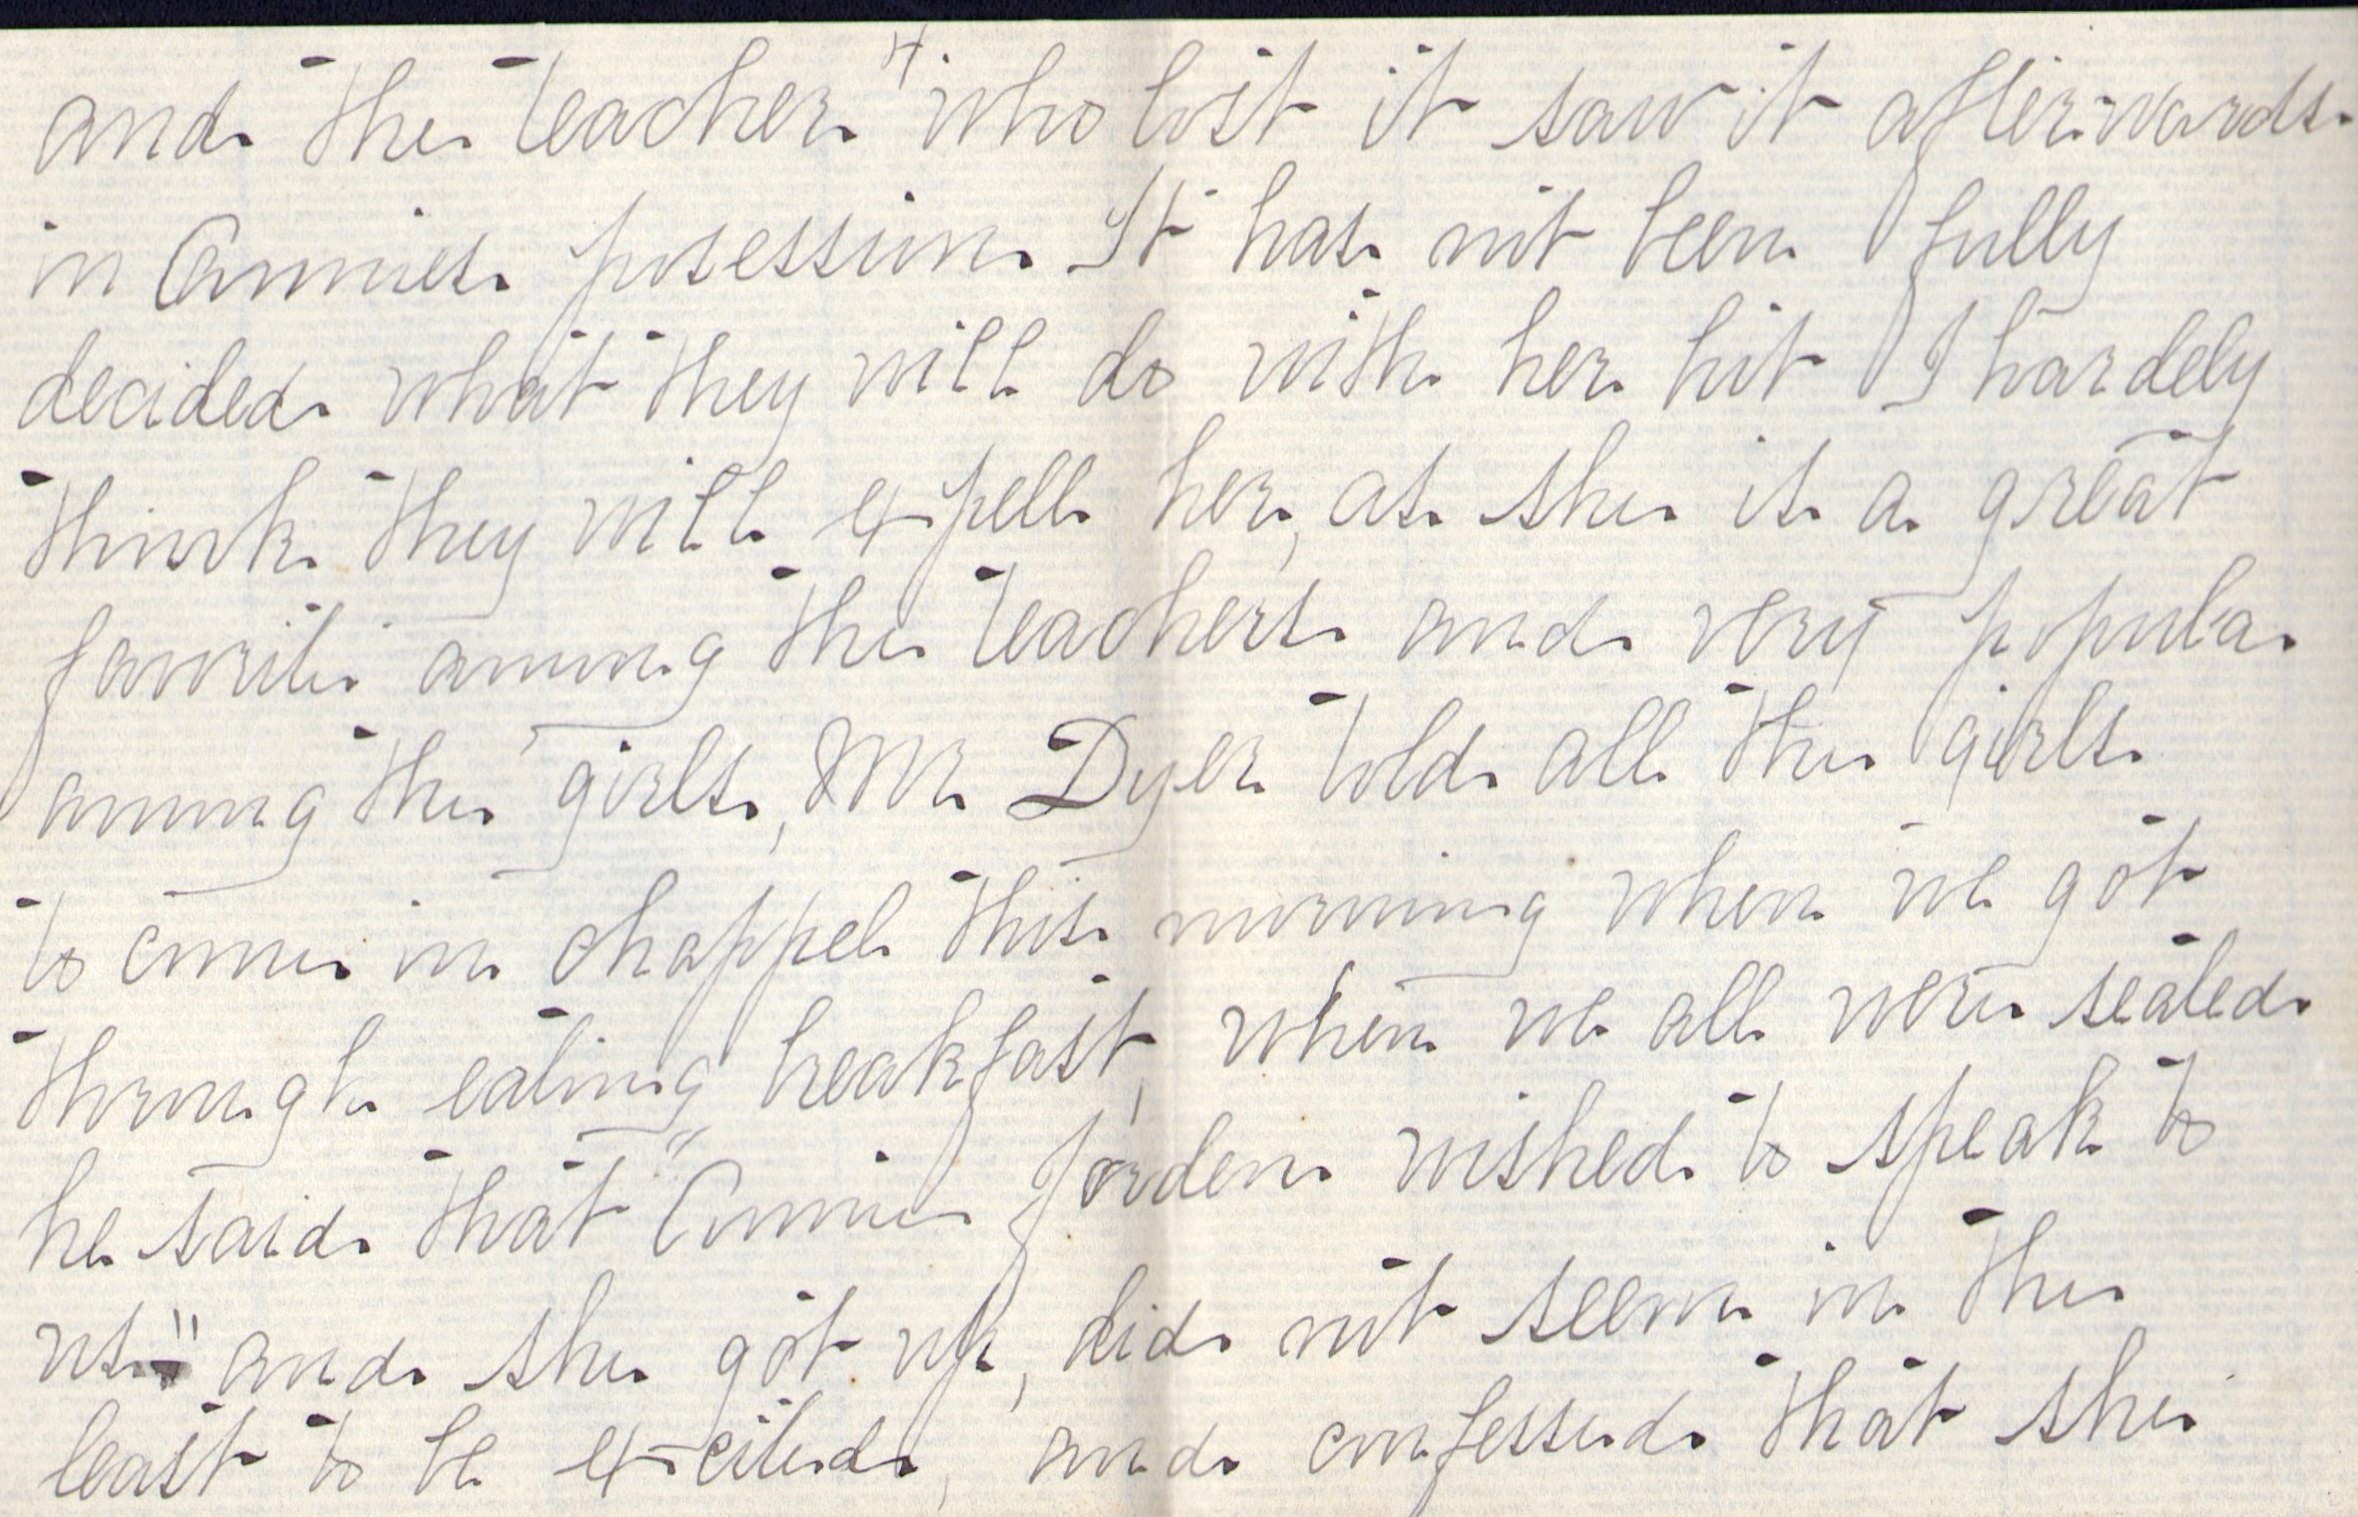 4.
and the teacher who lost it saw it afterwards
in Annies posession. It has not been fully
decided what they will do with her but I hardely
think they will expell her, as she is a great
favorite among the teachers and very popula
among the girls, Mr Dyer told all the girls
to come in chappel this morning when we got
through eating breakfast, when we all were seated
he said that "Annie Jorden wished to speak to
us" and she got up, did not seem in the
least to be excited, and confessed that she